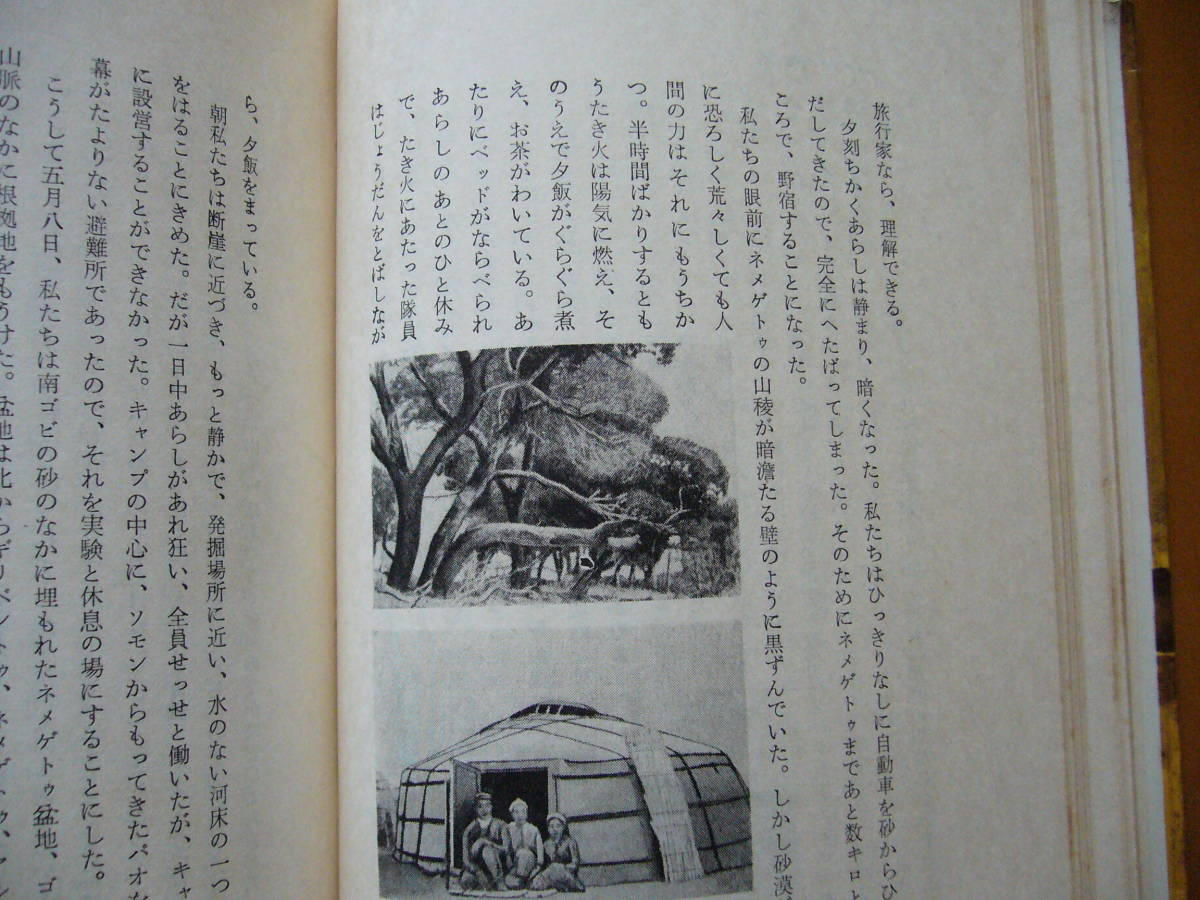 旅行家なら、理解できる。
夕刻ちかくあらしは静まり、暗くなった。私たちはひっきりなしに自動車を砂からひ
だしてきたので、完全にへたばってしまった。そのためにネメゲトゥまであと数キロと
ころで、野宿することになった。
私たちの眼前にネメゲトゥの山稜が暗澹たる壁のように黒ずんでいた。しかし砂漠、
に恐ろしく荒々しくても人
間の力はそれにもうちか
つ。半時間ばかりするとも
うたき火は陽気に燃え、そ
のうえで夕飯がぐらぐら煮
え、お茶がわいている。あ
たりにベッドがならべられ
あらしのあとのひと休み
で、たき火にあたった隊員
はじょうだんをとばしなが
ら、夕飯をまっている。
朝私たちは断崖に近づき、もっと静かで、発掘場所に近い、水のない河床の一つ
をはることにきめた。だが一日中あらしがあれ狂い、全員せっせと働いたが、キャ
に設営することができなかった。キャンプの中心に、ソモンからもってきたパオな
幕がたよりない避難所であったので、それを実験と休息の場にすることにした。
こうして五月八日、私たちは南ゴビの砂のなかに埋もれたネメゲトゥ盆地、ゴ
山脈のなかに根拠地をもうけた。盆地は北からギリベントゥ、ネメゲトゥ、